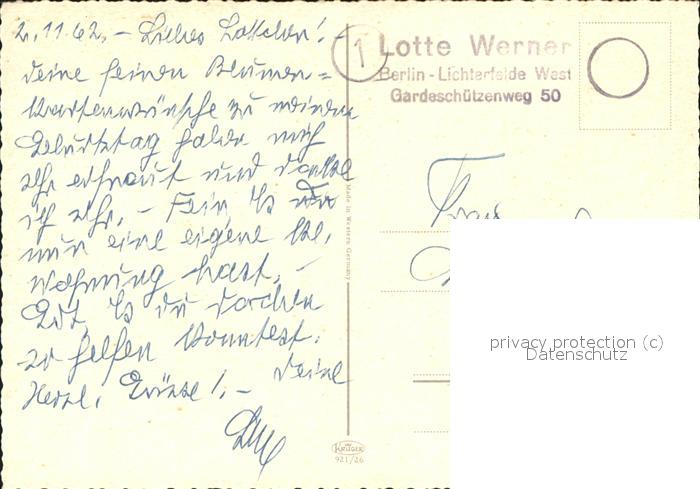 2.11.62. - Liebes Lottchen! -
Deine feinen Blumen-=
Kartenwünsche zu meinem
Geburtstag haben mich
sehr erfreut und danke
ich sehr. - Fein, daß du
nun eine eigene kl.
Wohnung hast. -
Gut, daß du Dorchen
so helfen konntest.
Herzl. Grüsse! - Deine
1
Lotte Werner
Berlin-Lichterfelde West
Gardeschützenweg 50
Made in Western Germany
Frau
privacy protection (c)
Datenschutz
KRÜGER
921/26